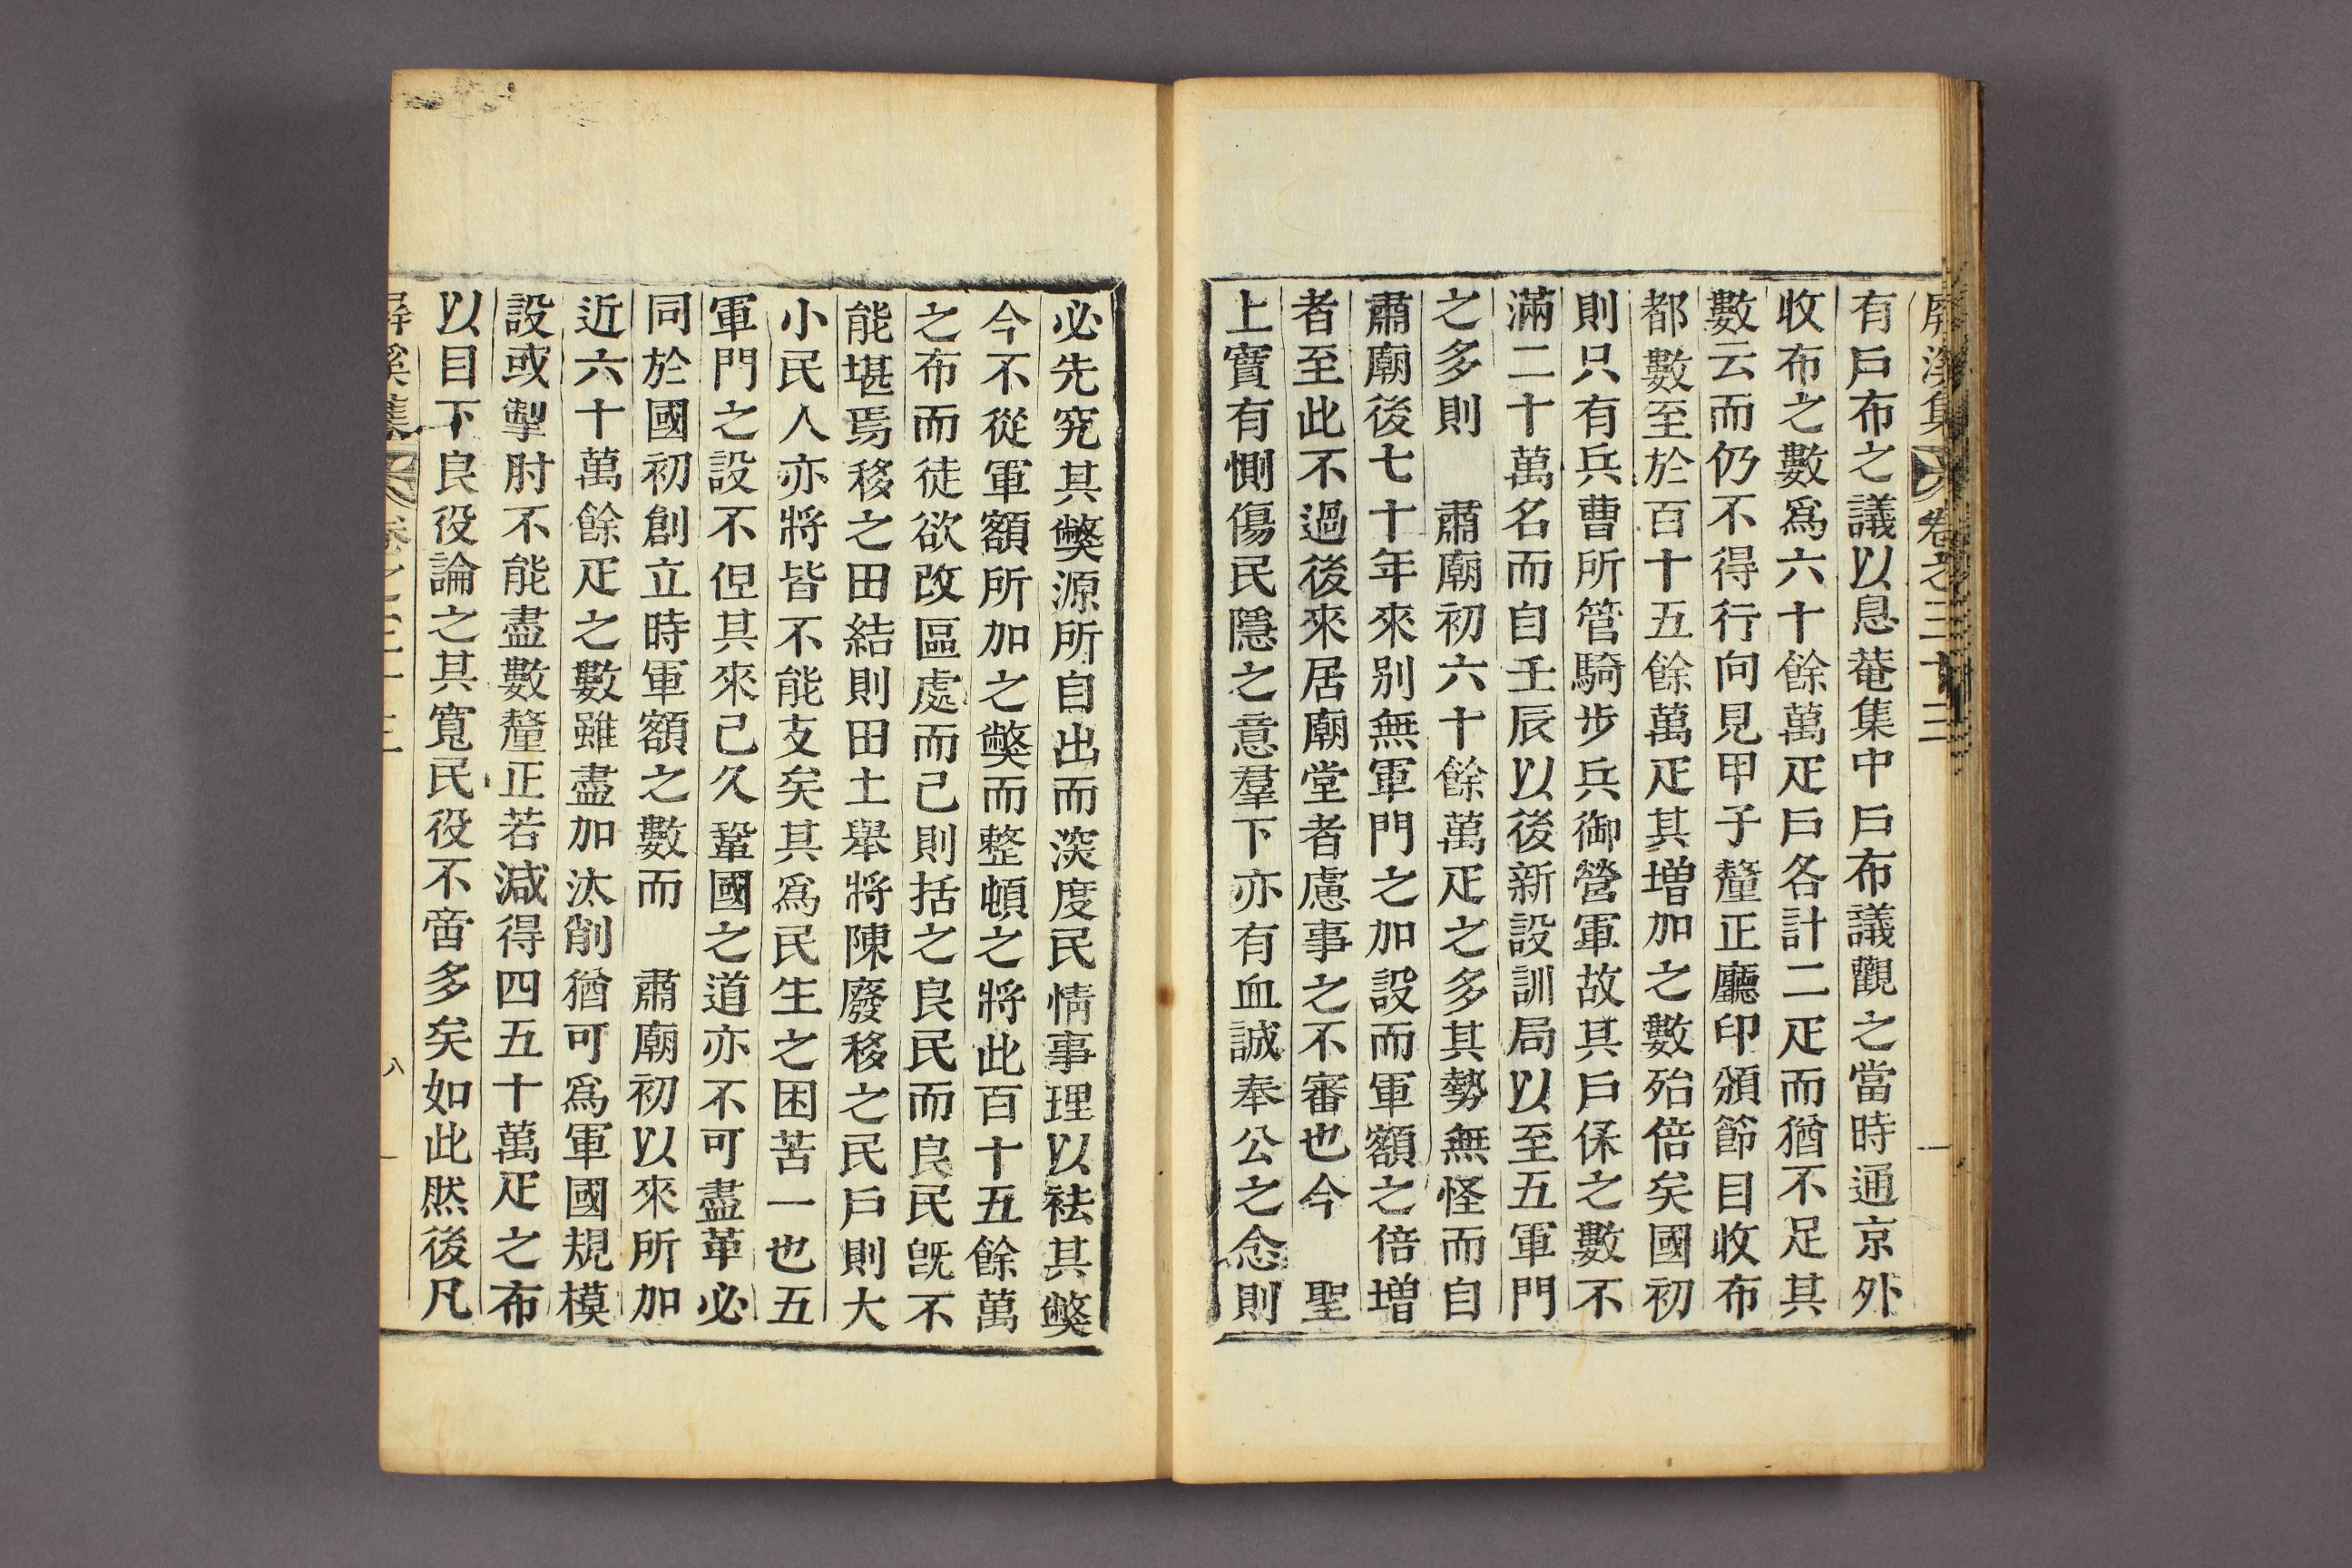 屛溪集 卷之三十三
有戶布之議以息菴集中戶布議觀之當時通京外
收布之數爲六十餘萬疋戶各計二疋而猶不足其
數云而仍不得行向見甲子釐正廳印頒節目收布
都數至於百十五餘萬疋其增加之數殆倍矣國初
則只有兵曹所管騎步兵御營軍故其戶保之數不
滿二十萬名而自壬辰以後新設訓局以至五軍門
之多則　肅廟初六十餘萬疋之多其勢無怪而自
肅廟後七十年來別無軍門之加設而軍額之倍增
者至此不過後來居廟堂者慮事之不審也今　聖
上實有惻傷民隱之意羣下亦有血誠奉公之念則
必先究其弊源所自出而深度民情事理以祛其弊
今不從軍額所加之弊而整頓之將此百十五餘萬
之布而徒欲改區處而已則括之良民而良民旣不
能堪焉移之田結則田土舉將陳廢移之民戶則大
小民人亦將皆不能支矣其爲民生之困苦一也五
軍門之設不但其來已久鞏國之道亦不可盡革必
同於國初創立時軍額之數而　肅廟初以來所加
近六十萬餘疋之數雖盡加汰削猶可爲軍國規模
設或掣肘不能盡數釐正若減得四五十萬疋之布
以目下良役論之其寬民役不啻多矣如此然後凡
屛溪集 卷之三十三 八